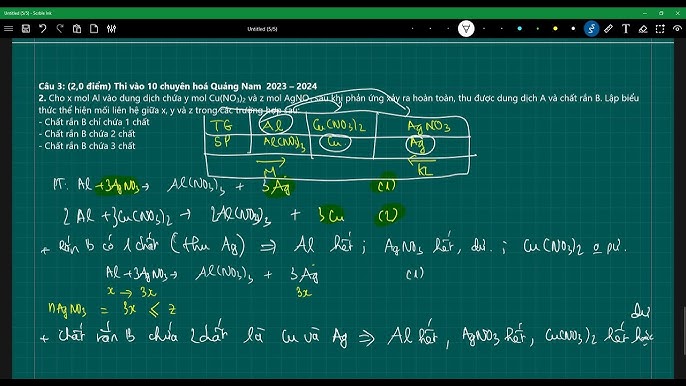 Untitled (5/5) - Scribble Ink
Untitled (5/5)
Câu 3: (2,0 điểm) Thi vào 10 chuyên hoá Quảng Nam 2023 – 2024
2. Cho x mol Al vào dung dịch chứa y mol Cu(NO₃)₂ và z mol AgNO₃ sau khi phản ứng xảy ra hoàn toàn, thu được dung dịch A và chất rắn B. Lập biểu
thức thể hiện mối liên hệ giữa x, y và z trong các trường hợp sau:
- Chất rắn B chỉ chứa 1 chất
- Chất rắn B chứa 2 chất
- Chất rắn B chứa 3 chất
TG Al Cu(NO3)2 AgNO3
SP Al(NO3)3 Cu Ag
M KL
PT: Al + 3AgNO3 → Al(NO3)3 + 3Ag (1)
2Al + 3Cu(NO3)2 → 2Al(NO3)3 + 3Cu (2)
+ rắn B có 1 chất (thu Ag) ⇒ Al hết ; AgNO3 hết, dư ; Cu(NO3)2 o pư.
Al + 3AgNO3 → Al(NO3)3 + 3Ag (1)
x → 3x 3x
nAgNO3 = 3x ≤ z
dư
+ chất rắn B chứa 2 chất là Cu và Ag ⇒ Al hết, AgNO3 hết, Cu(NO3)2 hết hoặc